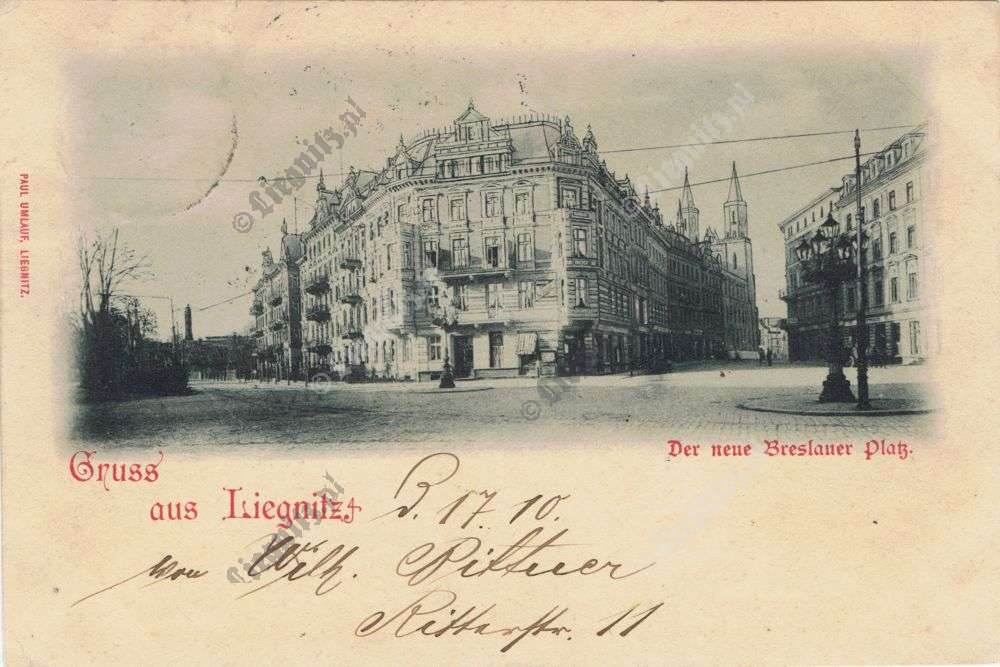 PAUL UMLAUF, LIEGNITZ.
© Liegnitz.pl
© Liegnitz.pl
© Liegnitz.pl
Der neue Breslauer Platz.
Gruss
aus Liegnitz,
D. 17. 10.
von Wilh. Pittner
Ritterstr. 11